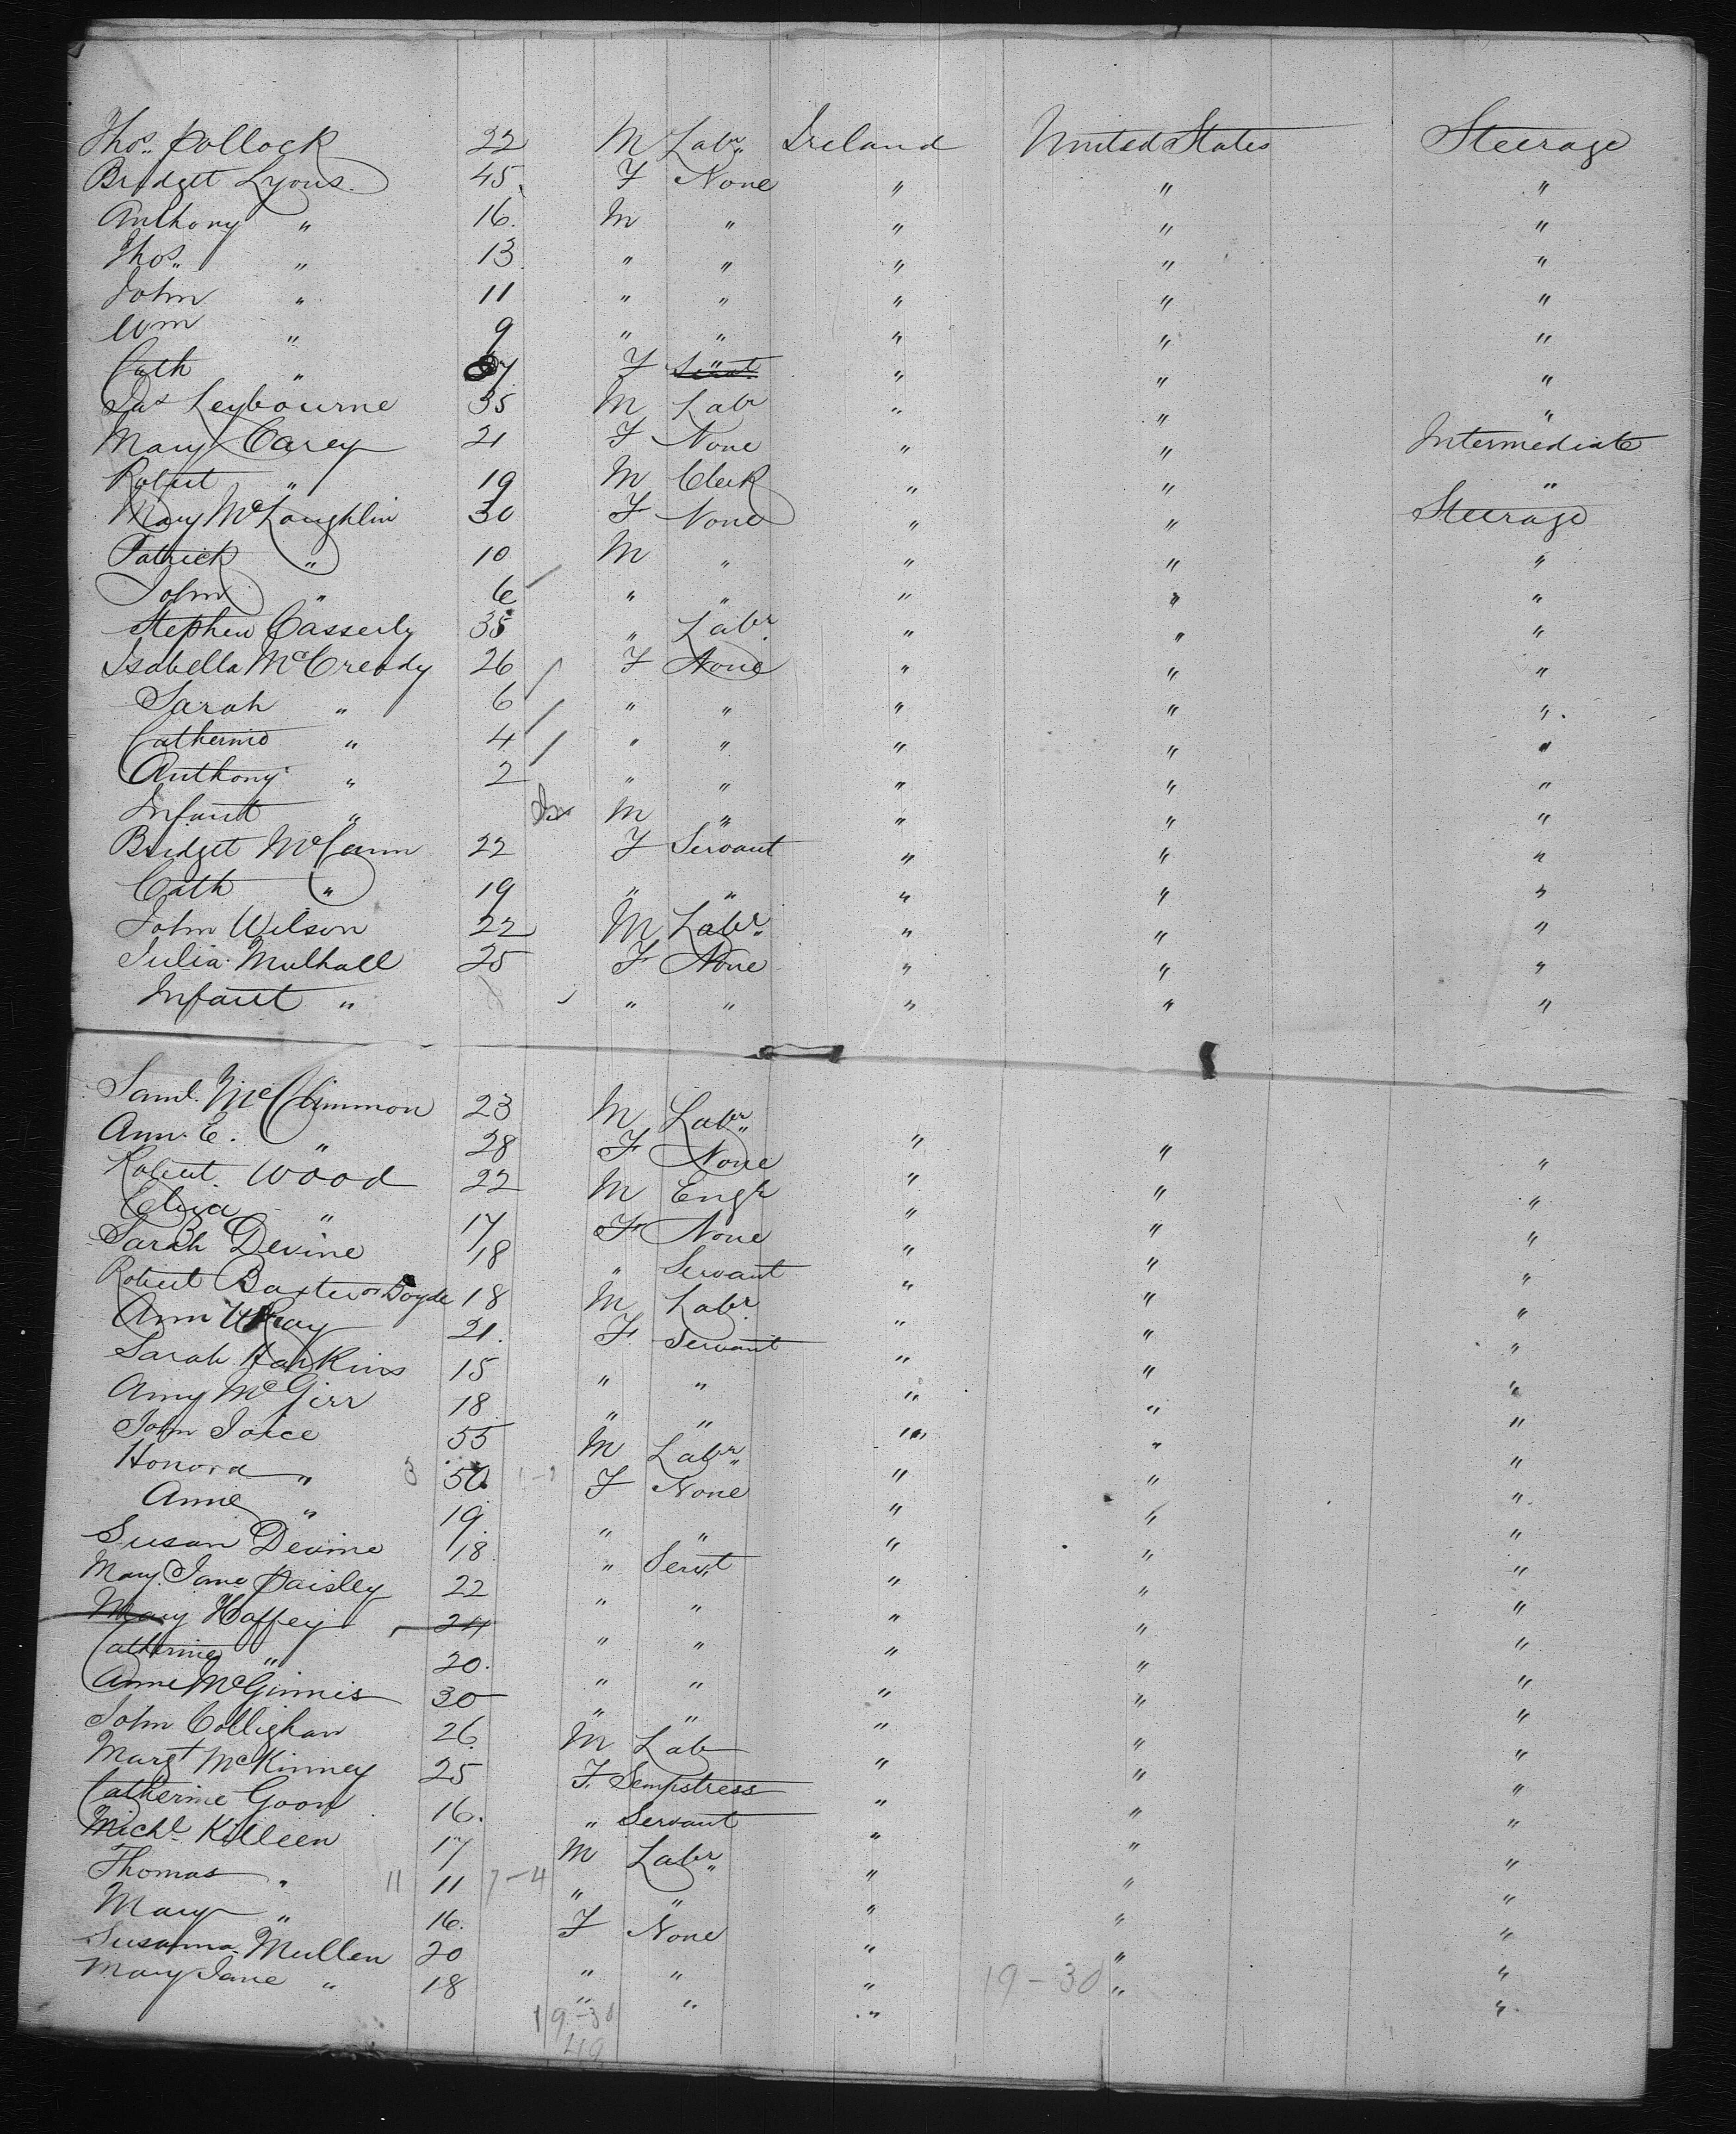 Thos. Pollock 22 M Labr. Ireland United States Steerage
Bridget Lyons. 45. F None " " "
Anthony " 16. M " " " "
Thos. " 13 " " " " "
John " 11 " " " " "
Wm " 9 " " " " "
Cath " 7 F Servt. " " "
Jas Leybourne 35 M Labr " " "
Mary Carey 21 F None " " Intermediate
Robert " 19 M Clerk " " "
Mary McLaughlin 30 F None " " Steerage
Patrick " 10 M " " " "
John " 6 " " " " "
Stephen Casserly 35 " Labr. " " "
Isabella McCready 26 F None " " "
Sarah " 6 " " " " "
Catherine " 4 " " " " "
Anthony " 2 " " " " "
Infant " M " " " "
Bridget McCann 22 F Servant " " "
Cath " 19 " " " " "
John Wilson 22 M Labr. " " "
Julia Mulhall 25 F None " " "
Infant " " " " " "
Saml. McClimmon 23 M Labr. " " "
Ann E. " 28 F None " " "
Robert Wood 22 M Engr " " "
Eliza " 17 F None " " "
Sarah Devine 18 " Servant " " "
Robert Baxter or Boyde 18 M Labr. " " "
Ann 21. F Servant " " "
Sarah Harkins 15 " " " " "
Amy McGirr 18 " " " " "
John Joice 55 M Labr. " " "
Honora " 3 50. 1-1 F None " " "
Anne " 19. " " " " "
Susan Devine 18. " Servt " " "
Mary Jane Paisley 22 " " " " "
Mary Haffey 24 " " " " "
Catherine " 20. " " " " "
Anne McGinnis 30 " " " " "
John Collighan 26. M Lab " " "
Margt McKinney 25 F. Sempstress " " "
Catherine Goon 16. " Servant " " "
Michl. Killeen 17 M Labr. " " "
Thomas " 11 11 7-4 " " " " "
Mary " 16. F None " " "
Susanna Mullen 20 " " " " "
Mary Jane " 18 " " " " "
19-30
19-30
49